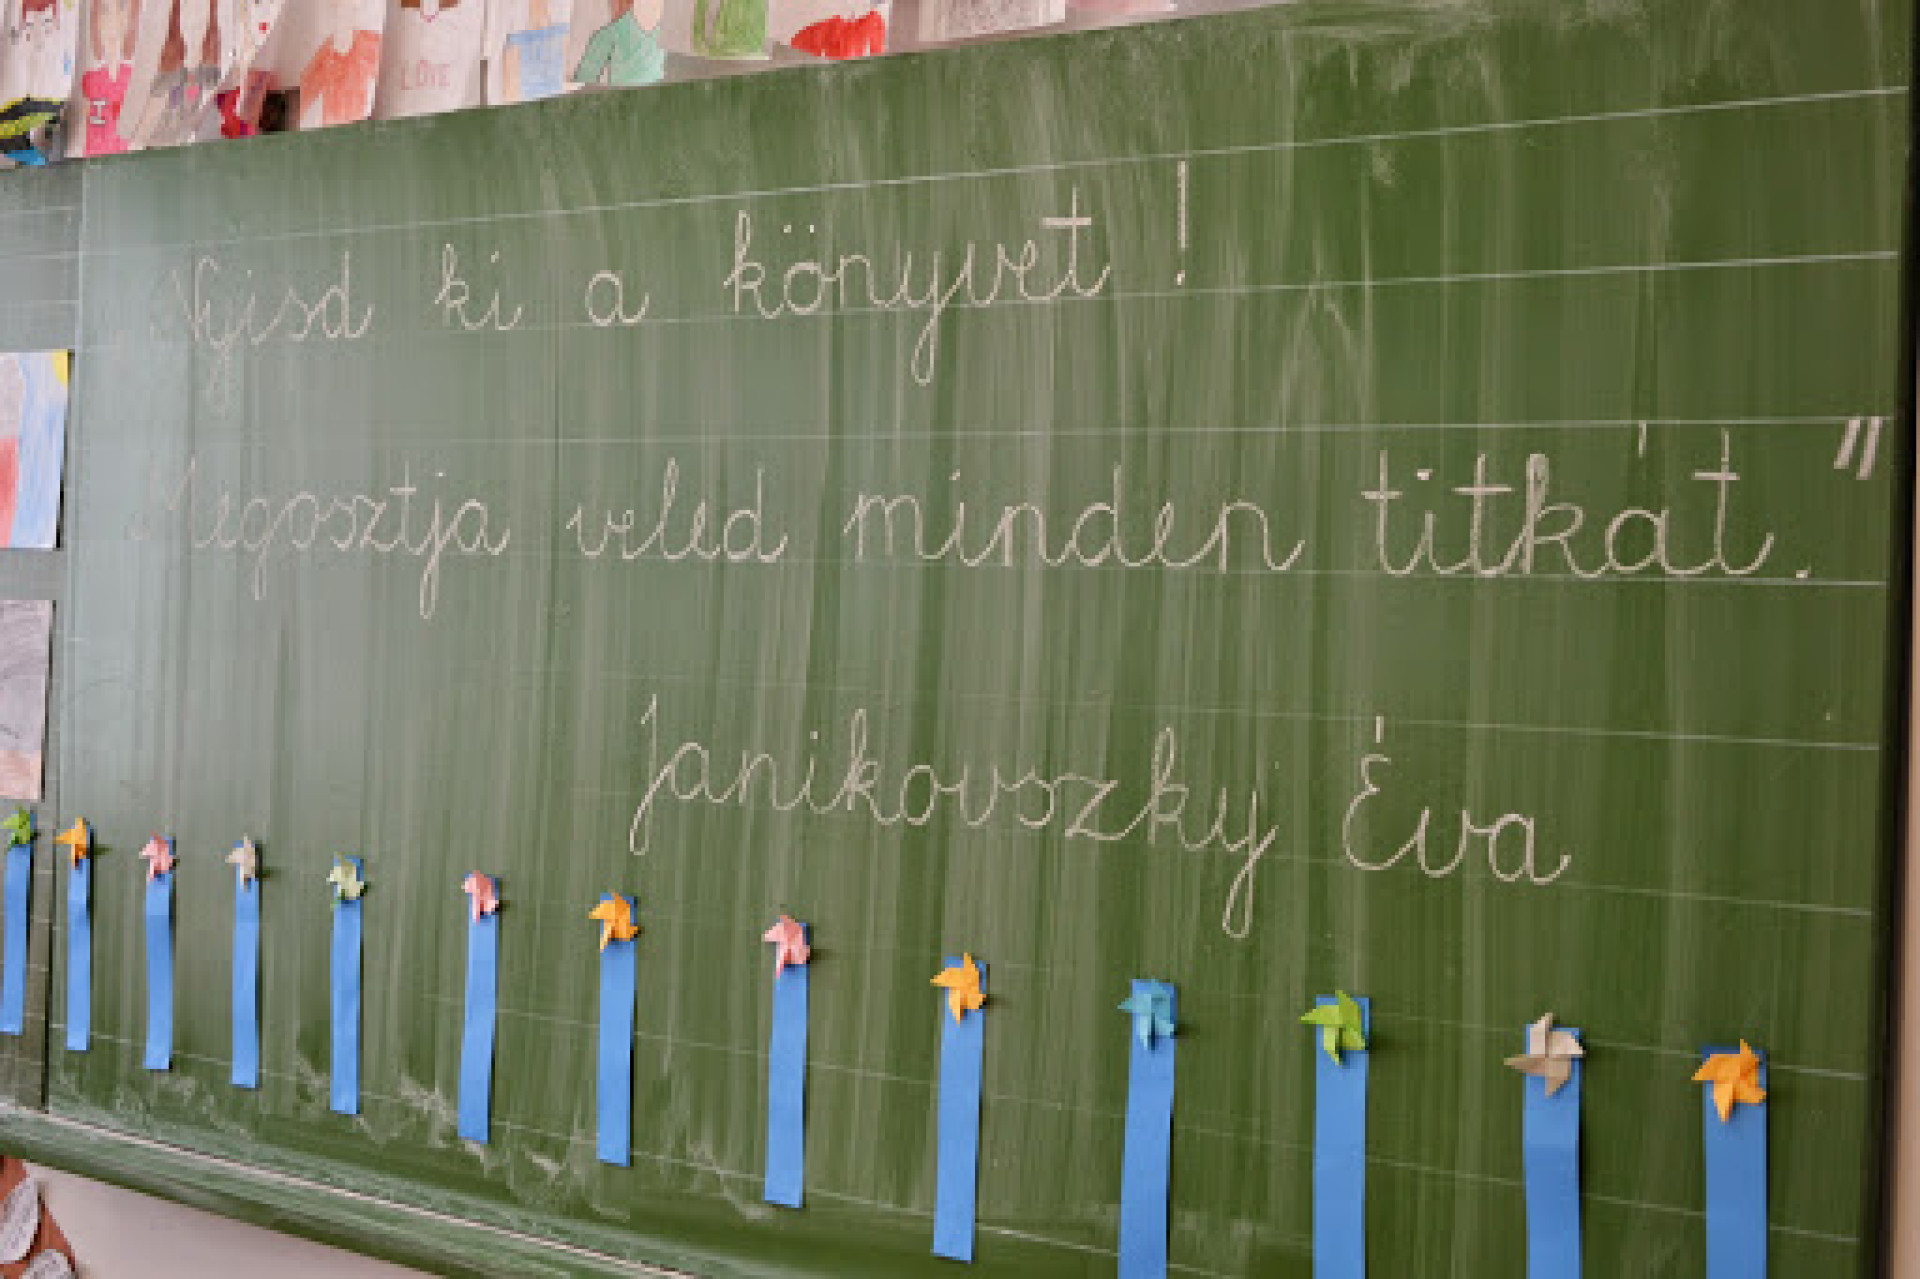 LOVE
I
Nyisd ki a könyvet!
Megosztja veled minden titkát."
Janikovszky Éva